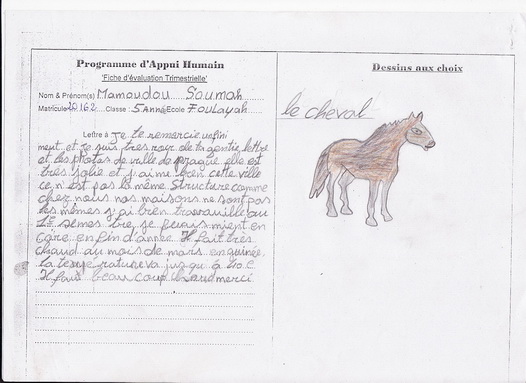 Programme d'Appui Humain
'Fiche d'évaluation Trimestrielle'
Nom & Prénom(s) Mamoudou Soumah
Matricule 20162 Classe : 5 Année Ecole FOULAYAH
Lettre à Je te remercie
ment et je suis très de ta gentie lettre
et les photos de ville de prague elle est
très jolie et j'aime bien cette ville
ce n'est pas la même Structure comme
chez nous nos maisons ne sont pas
les mêmes j'ai bien travaillé au
semes tre je mient en
care en fin d'année Il fait très
chaud au mois de mars en guinée
La va jusqu'à 40.c
Il fait beaucoup merci
Dessins aux choix
le cheval